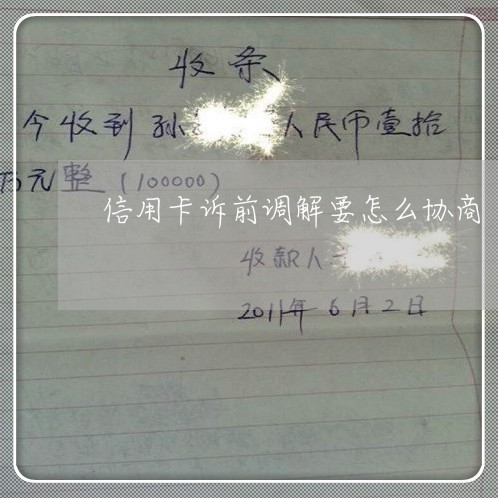 收条
今收到孙 人民币壹拾
万元整（100000）
信用卡诉前调解要怎么协商
收款人
2011年6月2日